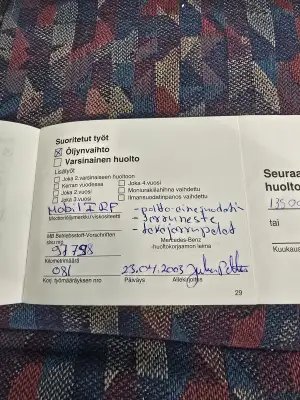 Suoritetut työt
☒ Öljynvaihto
☐ Varsinainen huolto
Lisätyöt
☐ Joka 2.varsinaiseen huoltoon
☐ Kerran vuodessa
☐ Joka 2.vuosi
☐ Joka 3.vuosi
☐ Joka 4.vuosi
☐ Moniurakiilahihna vaihdettu
☐ Ilmansuodatinpanos vaihdettu
Mobil
Moottoriöljymerkki/viskositeetti
- polttoainesuodatin
- Jarruneste
- etujarrupalat
MB Betriebsstoff-Vorschriften
sivu nro
Mercedes-Benz
-huoltokorjaamon leima
Kilometrimäärä
081
23.04.2003
Korj. työmääräyksen nro
Päiväys
Allekirjoitus
29
Seuraa
huolto
135.00
tai
Kuukaus